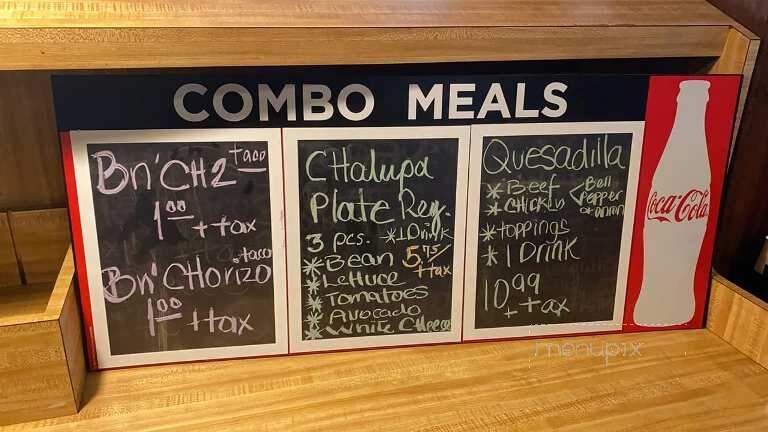 COMBO MEALS
Bn'CH2 taco
1.00 + tax
Bn'CHorizo taco
1.00 + tax
CHalupa
Plate Reg.
3 pcs. *1 Drink
*Bean 5.75/
+tax
*Lettuce
*Tomatoes
*Avocado
*White Cheese
Quesadilla
*Beef < Bell
*CHicken Pepper
onion
*toppings
*1 Drink
10.99
+ tax
Coca-Cola
menupix